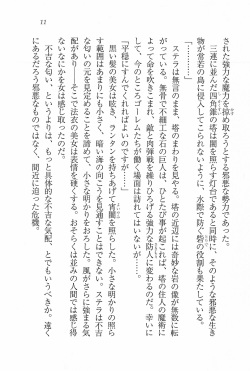 された強力な魔力を持つ取ろうとする邪悪な勢力であった。
三連に並んだ四角錐の塔は闇を照らす灯台であると同時に、そのような邪悪な生き
物が常若の島に侵入してきたときのために、水際で防ぐ砦の役割も果たしている。
ステラは無言のまま、塔のまわりを見やる。塔の近辺には奇妙な岩の像が無数に転
がっている。無骨で不細工な石の巨人は、ひとたび事が起これば、塔の住人の魔術に
よって命を吹きこまれ、敵と肉弾戦を繰りひろげる強力な防人に変わるのだ。幸いに
して、今のところゴーレムたちが働く場面は訪れてはいないし、できることならこの
平穏に過ごすにこしたことはないが……。
黒い髪の美女は呟きと共に、ランタンを持ちあげて暗闇を照らした。小さな明かりの照ら
す範囲はあまりにも小さく、暗い海の向こうを見通すことはできない。ステラは不吉
な匂いの元を見定めることを諦めて、小さな明かりをおろした。風がさらに強まる気
配があり――そこで法衣の美女は表情を硬くする。おそらく並みの人間では感じ得
ないなにかを女は感じ取っていた。
不吉な匂い、というよりは、もっと具体的な不吉な気配、とでもいうべきか。遠く
にあるだろう邪悪なものがもたらすのではない、間近に迫った危機。
11